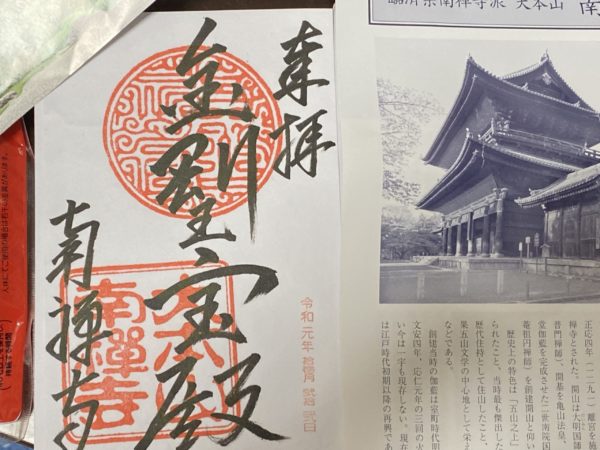 奉拝
金剛王宝殿
南禅寺
大本山
南禅寺
令和 元年
臨済宗南禅寺派 大本山 南
正応四年（一二九一）離宮を施
禅寺とされた。開山は大明国師
普門禅師）、開基を亀山法皇、
堂伽藍を完成させた二世南院国
菴祖円禅師）を創建開山と仰い
歴史上の特色は「五山之上」
られたこと、当時最も傑出した
歴代住持として住山したこと、
果五山文学の中心地として栄え
などである。
創建当時の伽藍は室町時代明
文安四年、応仁元年の三回の火
い今は一宇も現存しない。現在
は江戸時代初期以降の再興であ